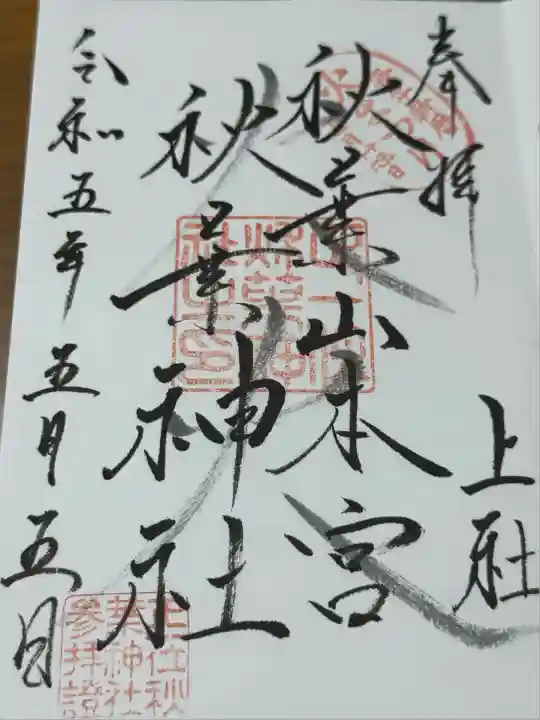 奉拝
上社
秋葉山本宮
秋葉神社
令和五年五月五日
正一位秋
葉神社
参拝證